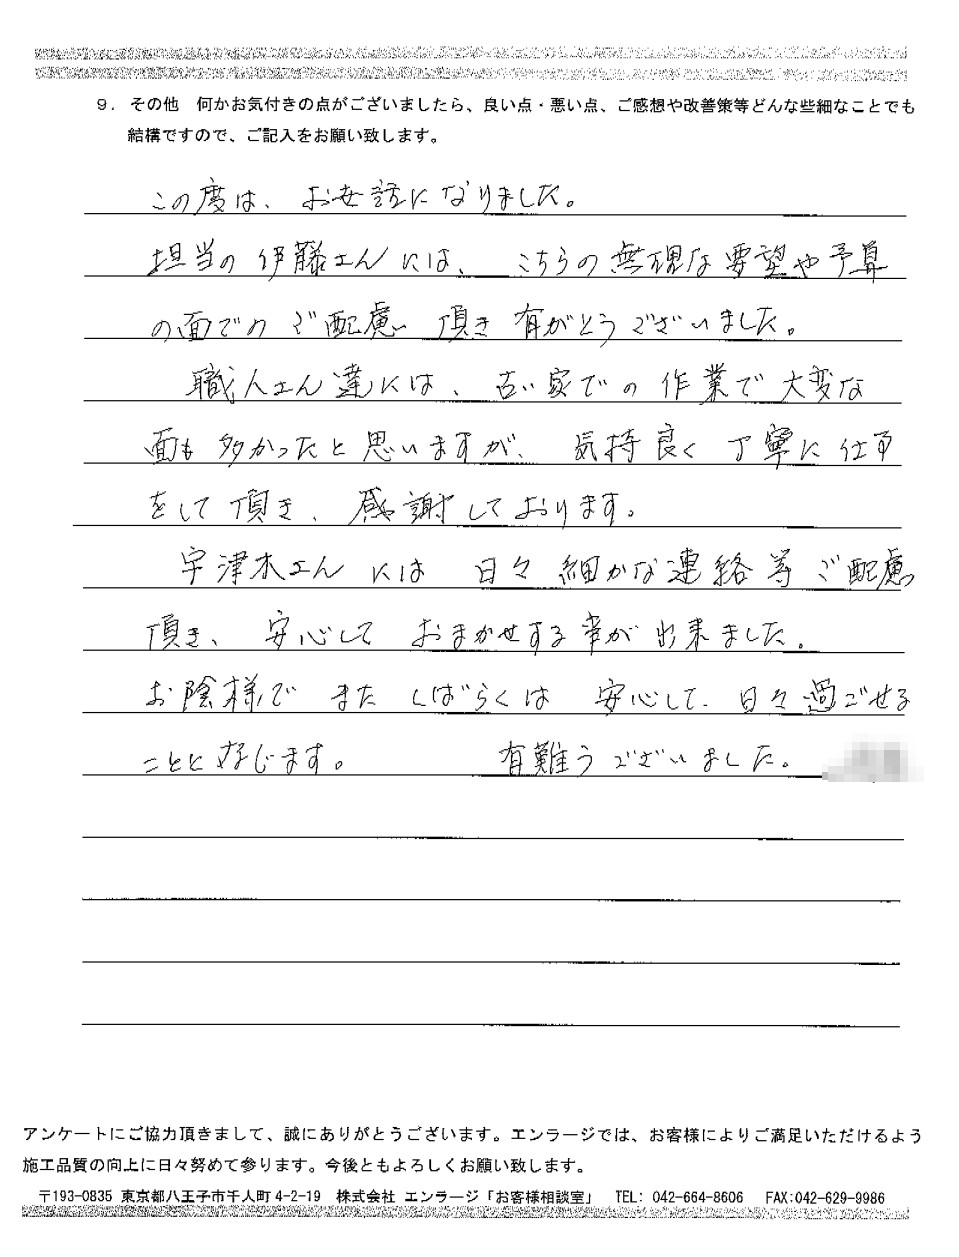 9. その他　何かお気付きの点がございましたら、良い点・悪い点、ご感想や改善策等どんな些細なことでも
結構ですので、ご記入をお願い致します。
この度は、お世話になりました。
担当の伊藤さんには、こちらの無理な要望や予算
の面でのご配慮 頂き 有がとうございました。
職人さん達には、古い家での作業で大変な
面も多かったと思いますが、気持良く丁寧に仕事
をして頂き、感謝しております。
宇津木さんには 日々細かな連絡等ご配慮
頂き、安心して おまかせする事が出来ました。
お陰様で また しばらくは 安心して、日々過ごせる
ことと存じます。　有難うございました。
アンケートにご協力頂きまして、誠にありがとうございます。エンラージでは、お客様によりご満足いただけるよう
施工品質の向上に日々努めて参ります。今後ともよろしくお願い致します。
〒193-0835 東京都八王子市千人町4-2-19　株式会社 エンラージ「お客様相談室」　TEL: 042-664-8606　FAX:042-629-9986